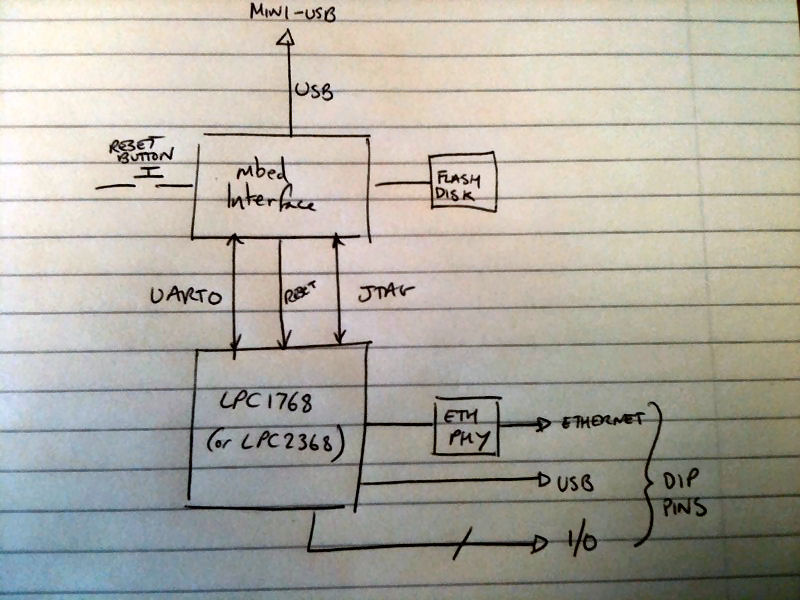 MINI-USB
USB
RESET
BUTTON
mbed
Interface
FLASH
DISK
UART0
RESET
JTAG
LPC1768
(or LPC2368)
ETH
PHY
ETHERNET
USB
DIP
PINS
I/O